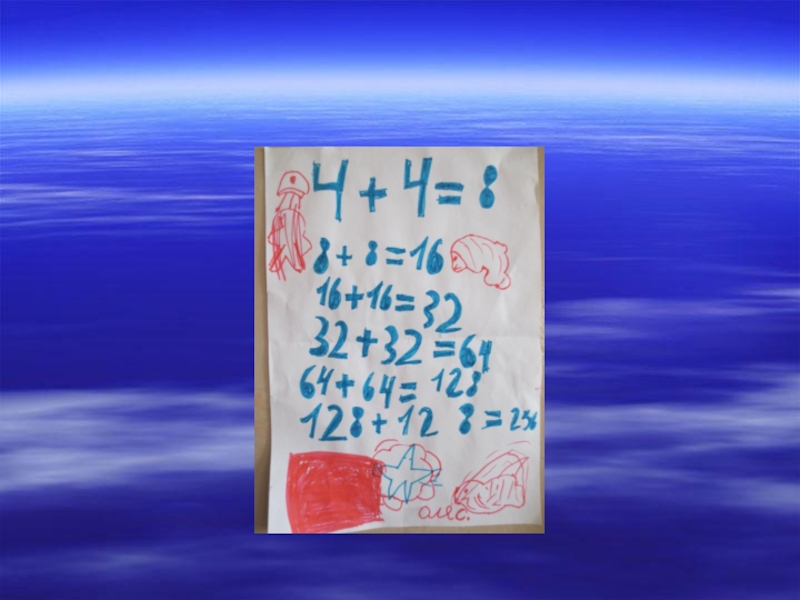 4+4=8
8+8=16
16+16=32
32+32=64
64+64=128
128+12 8=256